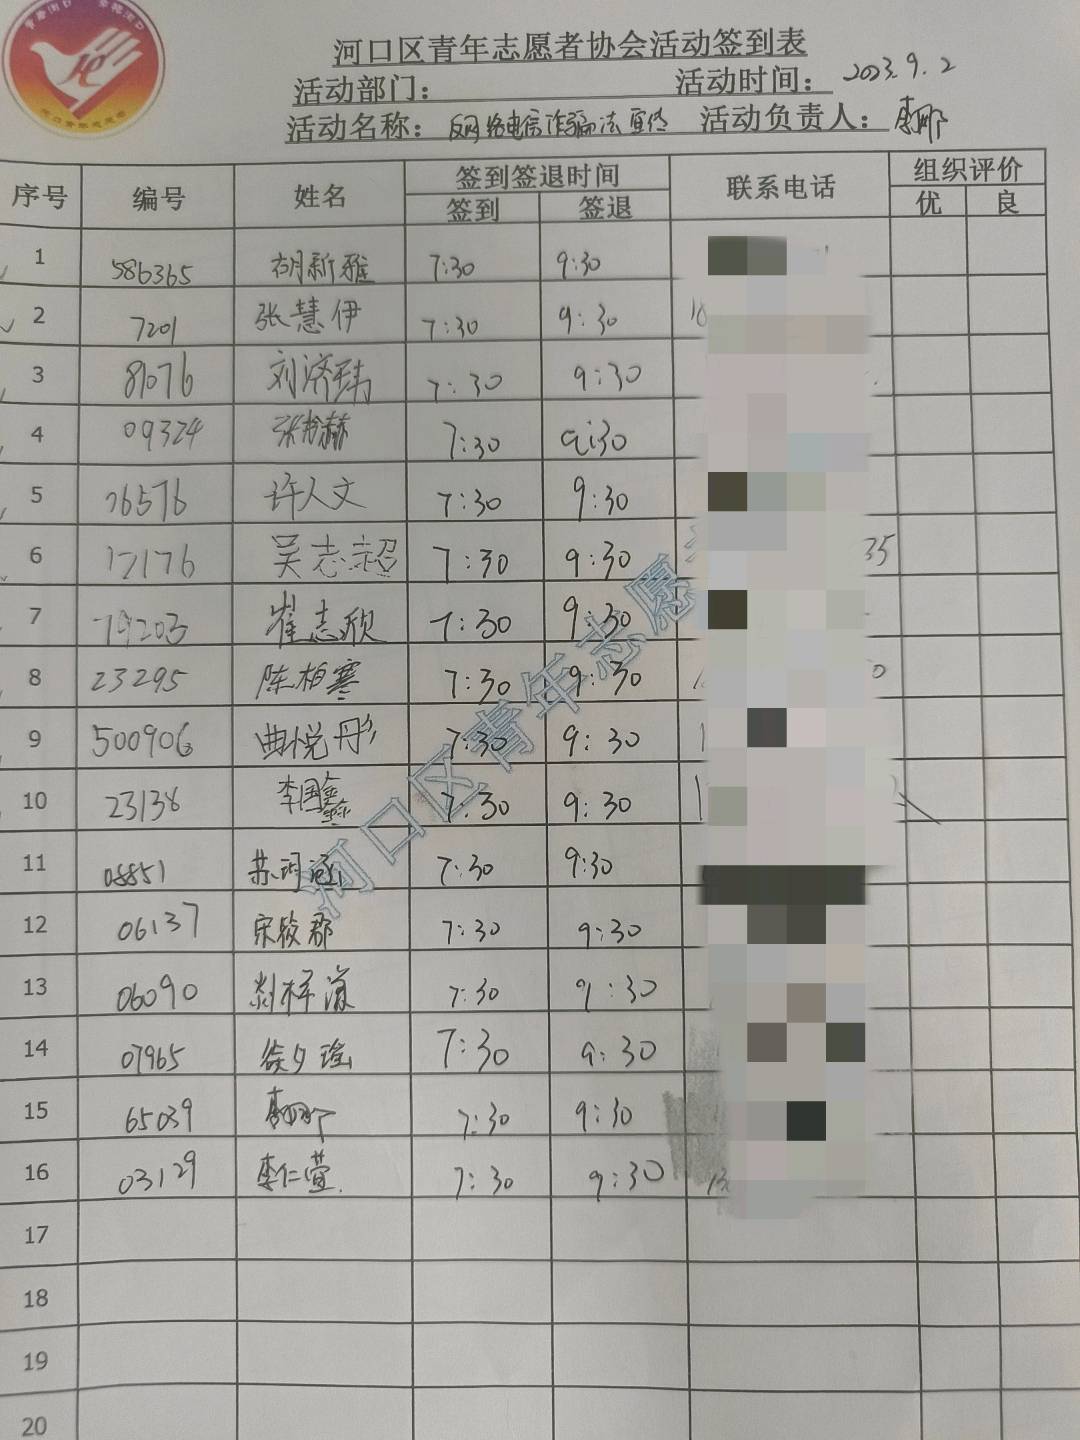 河口区青年志愿者协会活动签到表
活动部门： 活动时间：2023.9.2
活动名称：反网络电信诈骗法宣传 活动负责人：
序号 编号 姓名 签到签退时间 联系电话 组织评价
签到 签退 优 良
1 586365 胡新雅 7:30 9:30
2 7201 张慧伊 7:30 9:30
3 81076 刘济玮 7:30 9:30
4 09324 7:30 9:30
5 26576 许人文 7:30 9:30
6 12176 吴志超 7:30 9:30 35
7 79203 崔志欣 7:30 9:30
8 23295 陈柏寒 7:30 9:30
9 500906 曲悦彤 7:30 9:30
10 23138 李国鑫 7:30 9:30
11 08851 苏珂涵 7:30 9:30
12 06137 7:30 9:30
13 06090 7:30 9:30
14 07965 徐夕瑶 7:30 9:30
15 65039 7:30 9:30
16 03129 李仁萱 7:30 9:30
17
18
19
20
河口区青年志愿